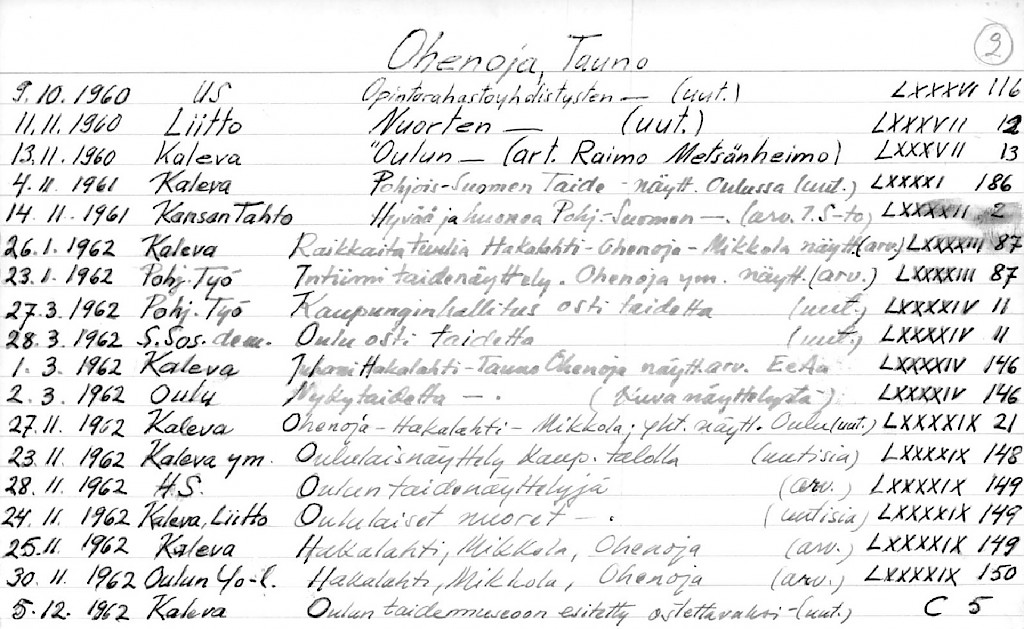 Ohenoja, Tauno
2
9.10.1960 US Opintorahastoyhdistysten — (uut.) LXXXVI 116
11.11.1960 Liitto Nuorten — (uut.) LXXXVII 12
13.11.1960 Kaleva "Oulun — (art. Raimo Metsänheimo) LXXXVII 13
4.11.1961 Kaleva Pohjois-Suomen Taide-näytt. Oulussa (uut.) LXXXXI 186
14.11.1961 Kansan Tahto Hyvää ja huonoa Pohj-Suomen —. (arv. T.S-to) LXXXXII 2
26.1.1962 Kaleva Raikkaita tuulia Hakalahti-Ohenoja-Mikkola näytt. (arv.) LXXXXIII 87
23.1.1962 Pohj. Työ Intiimi taidenäyttely. Ohenoja ym. näytt. (arv.) LXXXXIII 87
27.3.1962 Pohj. Työ Kaupunginhallitus osti taidetta (uut.) LXXXXIV 11
28.3.1962 S.Sos.dem. Oulu osti taidetta (uut.) LXXXXIV 11
1.3.1962 Kaleva Juhani Hakalahti-Tauno Ohenoja näytt. arv. EeAa LXXXXIV 146
2.3.1962 Oulu Nykytaidetta —. (Kuva näyttelystä) LXXXXIV 146
27.11.1962 Kaleva Ohenoja-Hakalahti-Mikkola; yht. näytt. Oulu (uut.) LXXXXIX 21
23.11.1962 Kaleva ym. Oululaisnäyttely kaup. talolla (uutisia) LXXXXIX 148
28.11.1962 H.S. Oulun taidenäyttelyjä (arv.) LXXXXIX 149
24.11.1962 Kaleva, Liitto Oululaiset nuoret —. (uutisia) LXXXXIX 149
25.11.1962 Kaleva Hakalahti, Mikkola, Ohenoja (arv.) LXXXXIX 149
30.11.1962 Oulun Yo-l. Hakalahti, Mikkola, Ohenoja (arv.) LXXXXIX 150
5.12.1962 Kaleva Oulun taidemuseoon esitetty ostettavaksi- (uut.) C 5